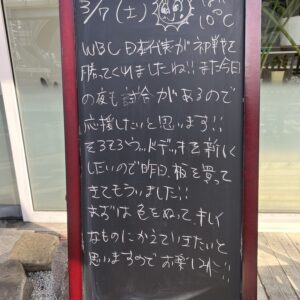 3/7(土) 10℃
WBC 日本代表が初戦で
勝ってくれましたね!! また今日
の夜も試合があるので
応援したいと思います!!
そろそろウッドデッキを新しく
したいので昨日、板を買って
きてもらいました!!
まずは色をぬってキレイ
なものにかえていきたいと
思いますのでお楽しみに!!